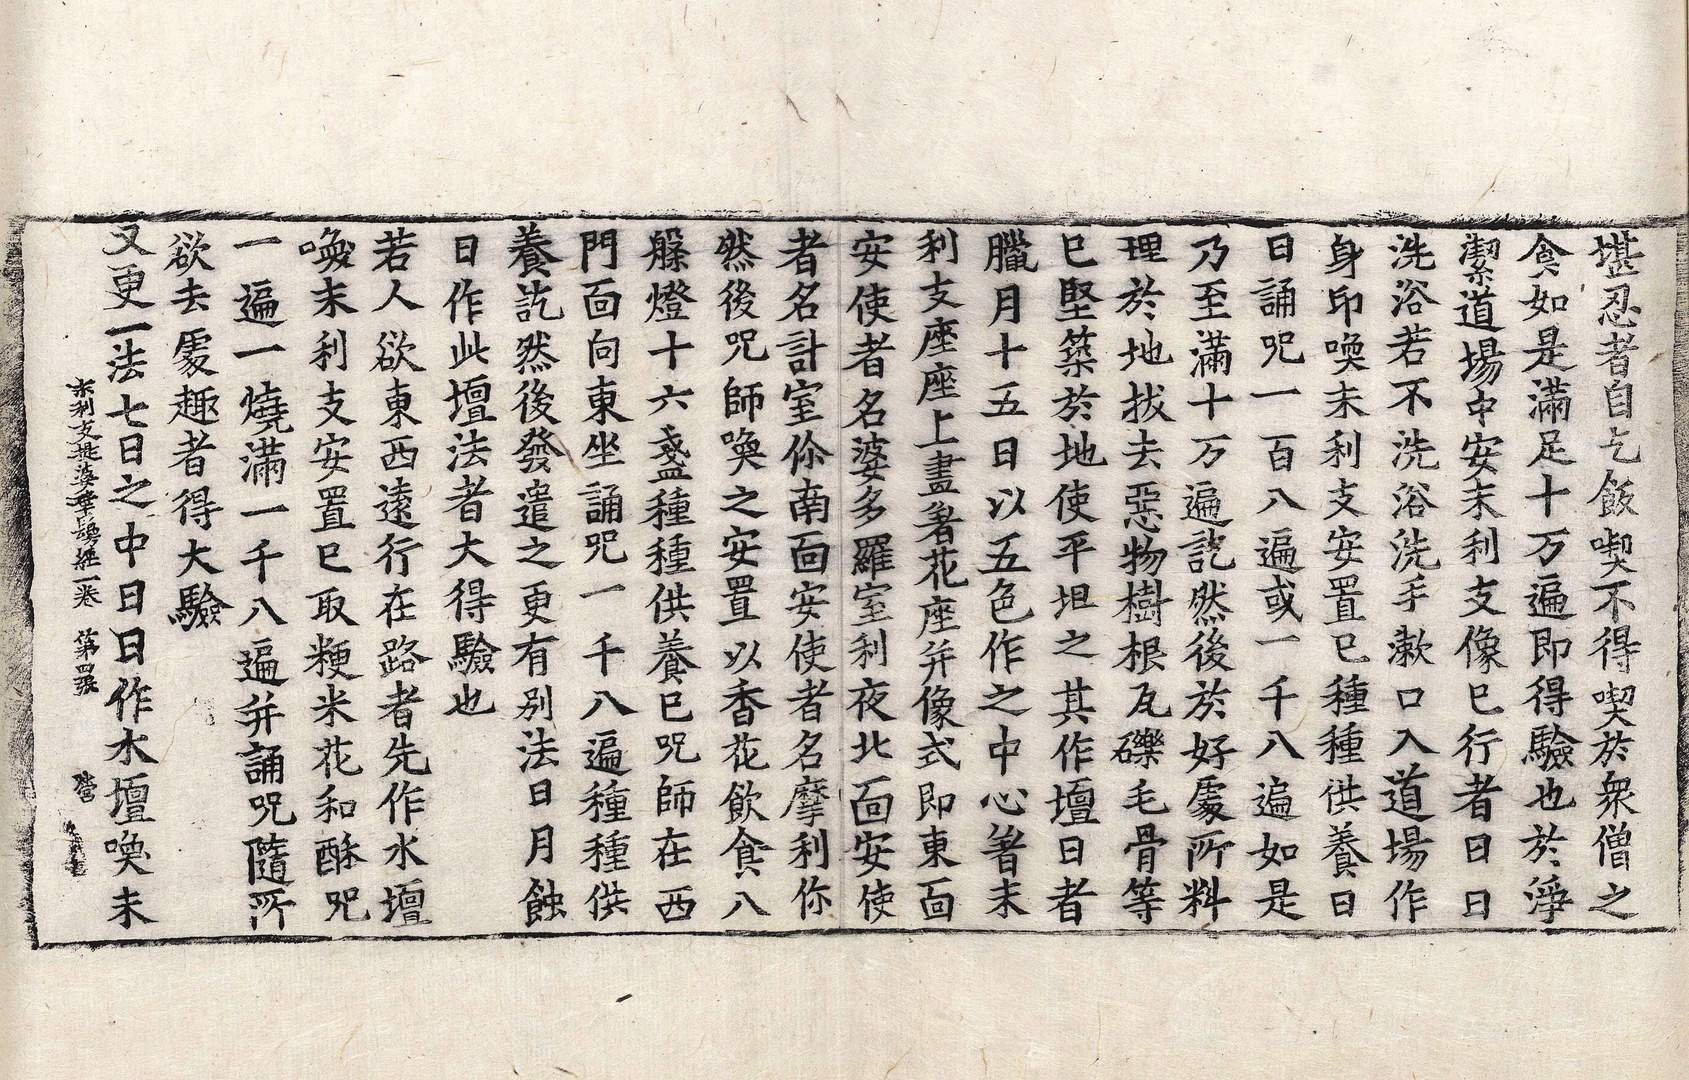 堪忍者自乞飯喫不得喫於衆僧之
食如是滿足十万遍即得驗也於淨
潔道場中安末利支像已行者日日
洗浴若不洗浴洗手漱口入道場作
身印喚末利支安置已種種供養日
日誦呪一百八遍或一千八遍如是
乃至滿十万遍訖然後於好處所料
理於地拔去惡物樹根瓦礫毛骨等
已堅築於地使平坦之其作壇日者
臘月十五日以五色作之中心着末
利支座座上畫着花座并像式即東面
安使者名婆多羅室利夜北面安使
者名計室你南面安使者名摩利你
然後呪師喚之安置以香花飲食八
槃燈十六盞種種供養已呪師在西
門面向東坐誦呪一千八遍種種供
養訖然後發遣之更有別法日月蝕
日作此壇法者大得驗也
若人欲東西遠行在路者先作水壇
喚末利支安置已取粳米花和酥呪
一遍一燒滿一千八遍并誦呪隨所
欲去處趣者得大驗
又更一法七日之中日日作水壇喚末
末利支提婆華鬘經一卷 第四張